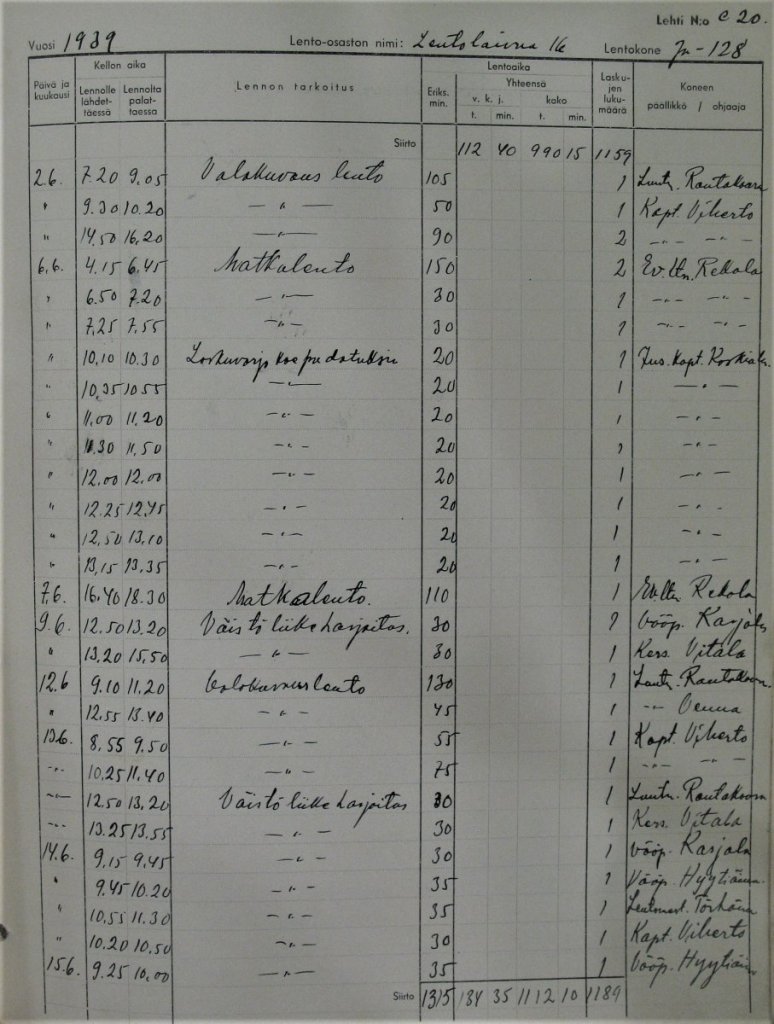 Lehti N:o C 20.
Vuosi 1939 Lento-osaston nimi: Lentolaivue 16 Lentokone Ju-128
Päivä ja kuukausi Kellon aika Lennolle lähdettäessä Lennolta palattaessa Lennon tarkoitus Eriks. min. Lentoaika Yhteensä v. k. j. t. min. koko t. min. Laskujen lukumäärä Koneen päällikkö / ohjaaja
Siirto 112 40 990 15 1159
2.6. 7.20 9.05 Valokuvaus lento 105 1 Luutn. Rautakoura
" 9.30 10.20 — " — 50 1 Kapt. Viherto
" 14.50 16.20 — " — 90 2 — " — — " —
6.6. 4.15 6.45 Matkalento 150 2 Ev.ltn. Rekola
" 6.50 7.20 — " — 30 1 — " — — " —
" 7.25 7.55 — " — 30 1 — " — — " —
" 10.10 10.30 20 1 Kapt.
" 10.35 10.55 — " — 20 1 — " —
" 11.00 11.20 — " — 20 1 — " —
" 11.30 11.50 — " — 20 1 — " —
" 12.00 12.00 — " — 20 1 — " —
" 12.25 12.45 — " — 20 1 — " —
" 12.50 13.10 — " — 20 1 — " —
" 13.15 13.35 — " — 20 1 — " —
7.6. 16.40 18.30 Matkalento. 110 1 Ev.ltn. Rekola
9.6. 12.50 13.20 Väistöliikeharjoitus. 30 1 Vääp. Karjala
" 13.20 15.50 — " — 30 1 Kers. Vitala
12.6 9.10 11.20 Valokuvauslento 130 1 Luutn. Rautakoura
" 12.55 13.40 — " — 45 1 — " — Venna
13.6. 8.55 9.50 — " — 55 1 Kapt. Viherto
— " — 10.25 11.40 — " — 75 1 — " — — " —
— " — 12.50 13.20 Väistöliikeharjoitus 30 1 Luutn. Rautakoura
— " — 13.25 13.55 — " — 30 1 Kers. Vitala
14.6. 9.15 9.45 — " — 30 1 Vääp. Karjala
" 9.45 10.20 — " — 35 1 Vääp. Hyytiäinen
" 10.55 11.30 — " — 35 1 Lentomest. Törhönen
" 10.20 10.50 — " — 30 1 Kapt. Viherto
15.6. 9.25 10.00 — " — 35 1 Vääp. Hyytiäinen
Siirto 1315 134 35 1112 10 1189